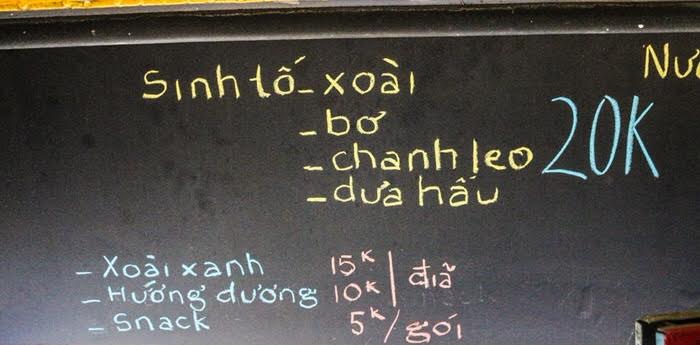 Sinh tố - xoài
- bơ
- chanh leo 20K
- dưa hấu
- Xoài xanh 15K | đĩa
- Hướng dương 10K |
- Snack 5K / gói